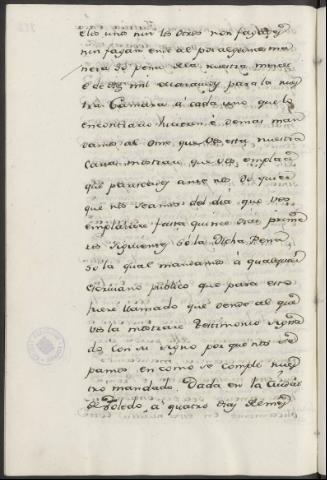 elos unos nin los otros non fagades
nin fagan ende al por alguna ma
nera so pena dela nuestra merced
e de diez mil maravedis para la nues
tra Camara a cada uno que lo
contrario hiciere, e demas man
damos al ome que vos esta nuestra
carta mostrare que vos emplace
que parezcades ante nos do quier
que nos seamos del dia que vos
emplazare fasta quince dias prime
ros siguientes so la dicha Pena
so la qual mandamos a qualquier
escrivano publico que para esto
fuere llamado que dende al que
vos la mostrare testimonio signa
do con su signo por que nos se
pamos en como se cumple nues
tro mandado. Dada en la Ciudad
de Toledo, a quatro dias del mes